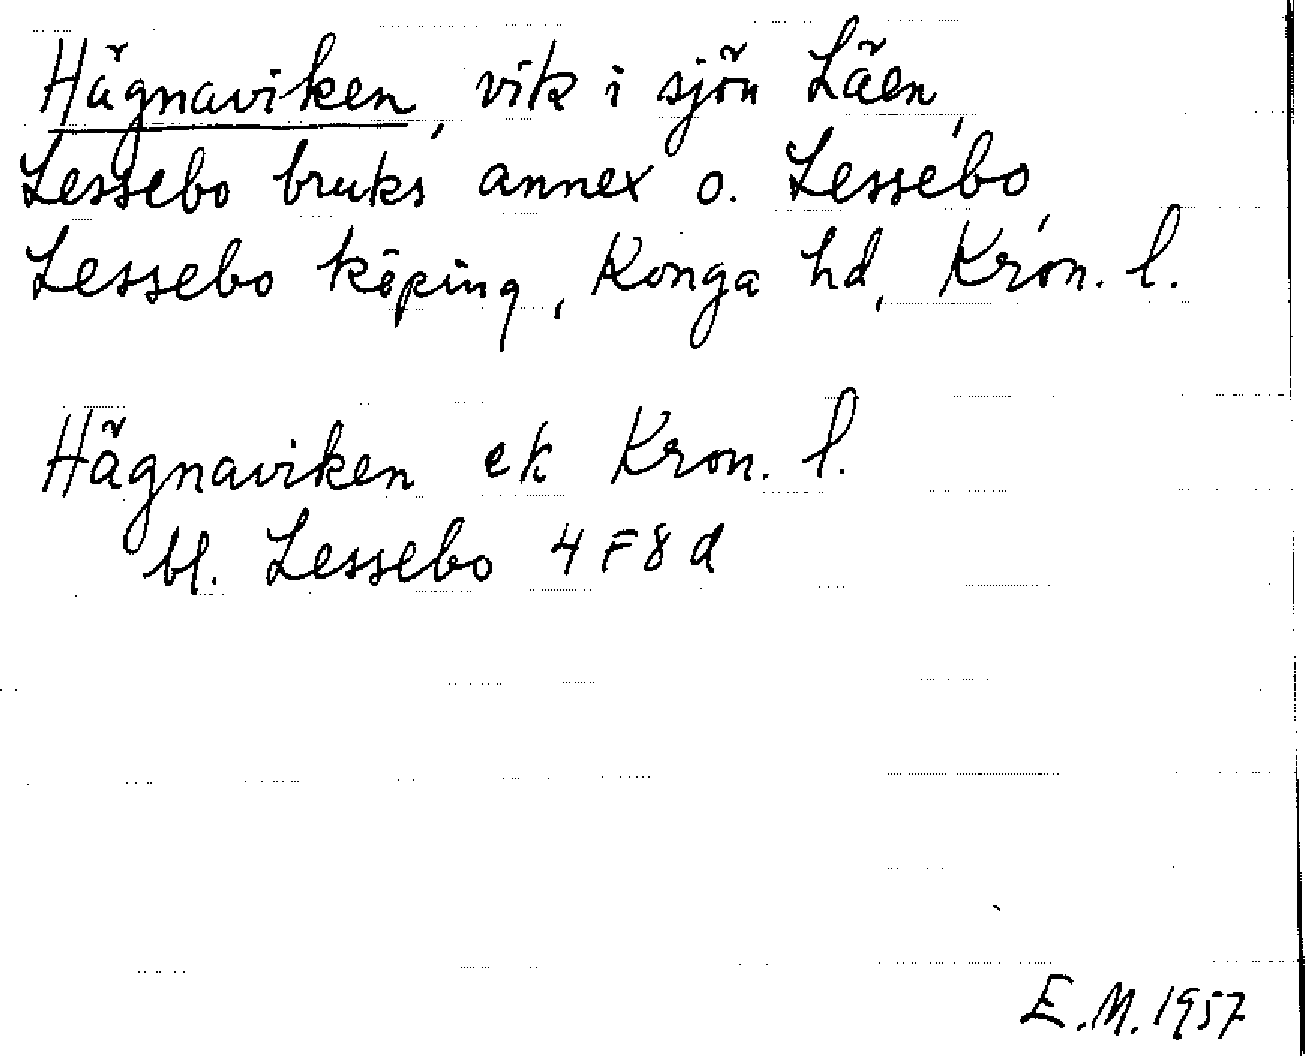 Hägnaviken, vik i sjön Läen,
Lessebo bruks annex o. Lessebo,
Lessebo köping, Konga hd, Kron. l.
Hägnaviken ek Kron. l.
bl. Lessebo 4 F 8 d
E.M. 1957